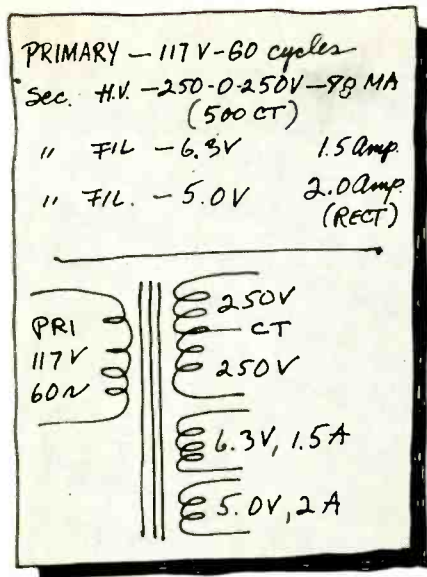 PRIMARY — 117 V-60 cycles
Sec. H.V. -250-0-250V- MA
(500 CT)
" FIL - 6.3V 1.5 Amp.
" FIL. - 5.0V 2.0 Amp.
(RECT)
PRI
117 V
60~
250V
CT
250V
6.3V, 1.5A
5.0V, 2 A